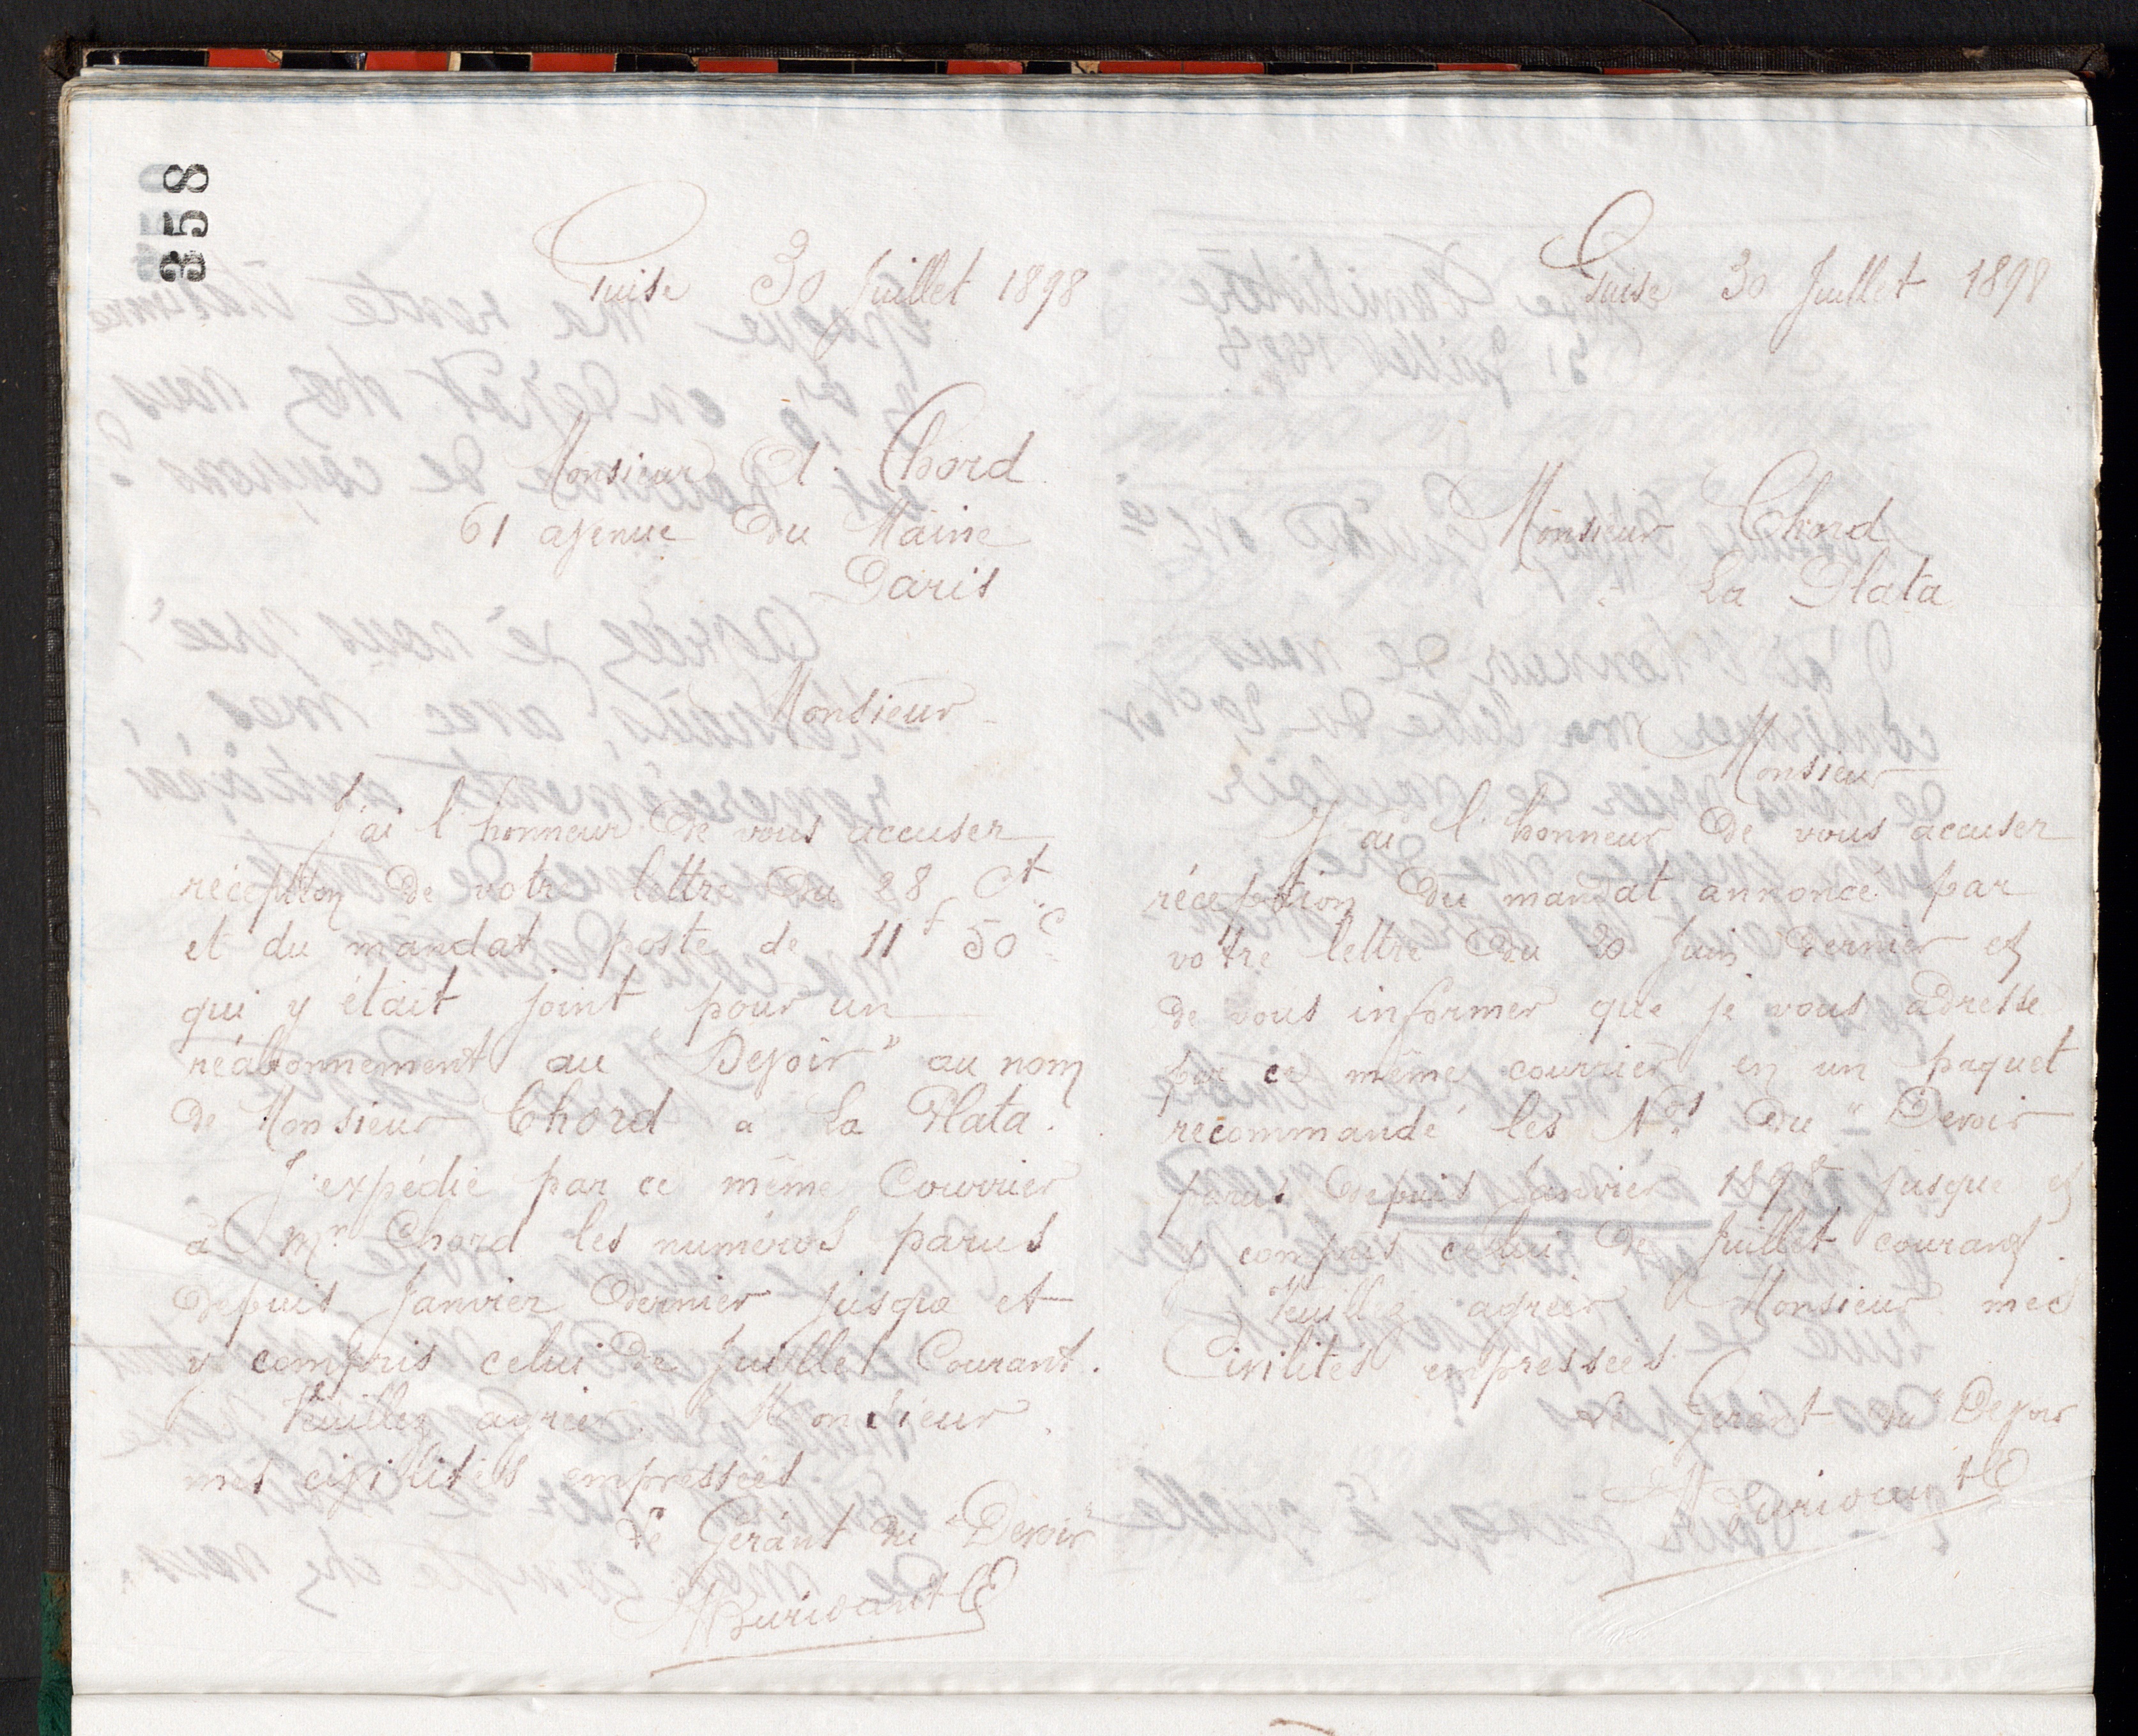 358
Guise 30 Juillet 1898
Monsieur A. Chord
61 avenue du Maine
Paris
Monsieur
J'ai l'honneur de vous accuser
réception de votre lettre du 28 Ct
et du mandat poste de 11f 50c
qui y était joint pour un
réabonnement au "Devoir" au nom
de Monsieur Chord a La Plata.
J'expédie par ce même Courrier
à Mr Chord les numéros parus
depuis Janvier dernier jusque et
y compris celui de Juillet Courant.
Veuillez agréer, Monsieur,
mes civilités empressées
Le Gérant du "Devoir"
Guise 30 Juillet 1898
Monsieur Chord
La Plata
Monsieur
J'ai l'honneur de vous accuser
réception du mandat annoncé par
votre lettre du 20 Juin dernier et
de vous informer que je vous adresse
par ce même courrier en un paquet
recommandé les Nos du "Devoir
parus depuis Janvier 1898 jusque et
y compris celui de Juillet courant.
Veuillez agréer Monsieur mes
Civilités empressées
Le Gérant du "Devoir